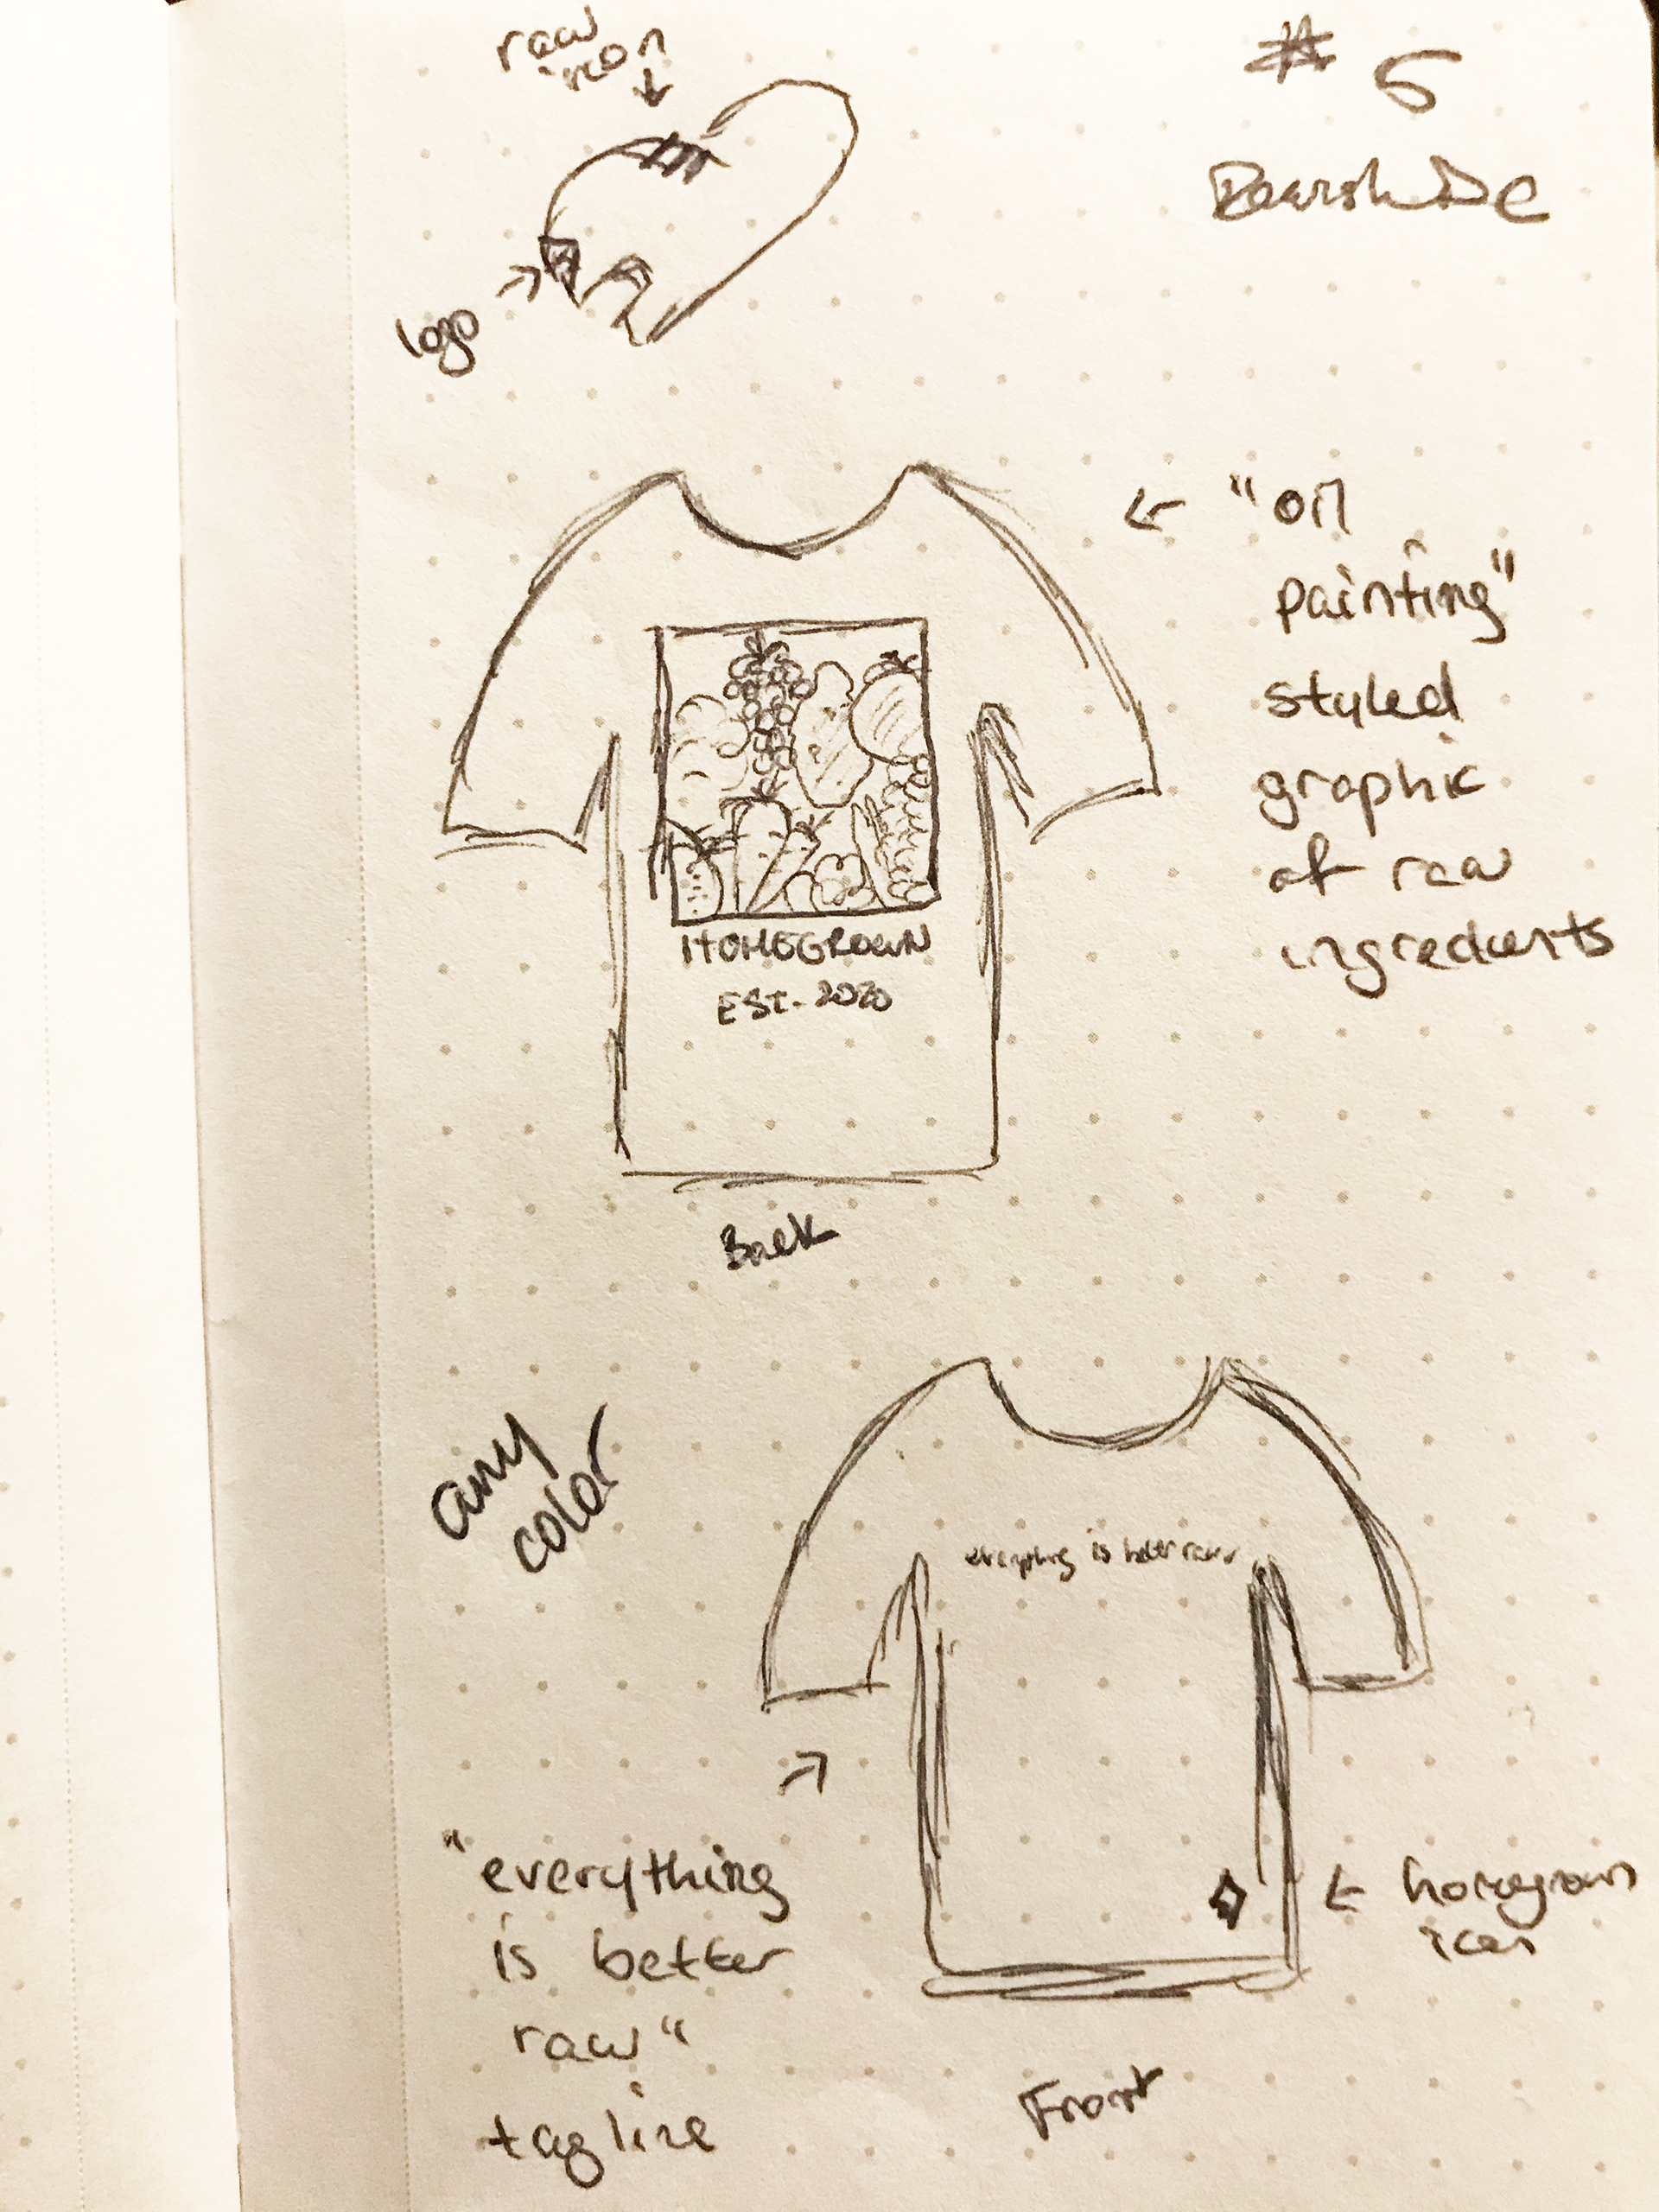 raw
icon
# 5
logo
"oil
painting"
styled
graphic
of raw
ingredients
HOMEGROWN
EST. 2020
Back
any
color
everything is better raw
"everything
is better
raw"
tagline
homegrown
icon
Front